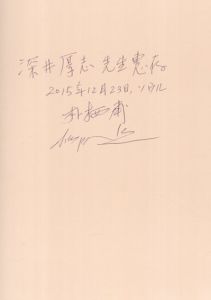 深井厚志 先生 惠存
2015年12月23日, ソウル
朴栖甫